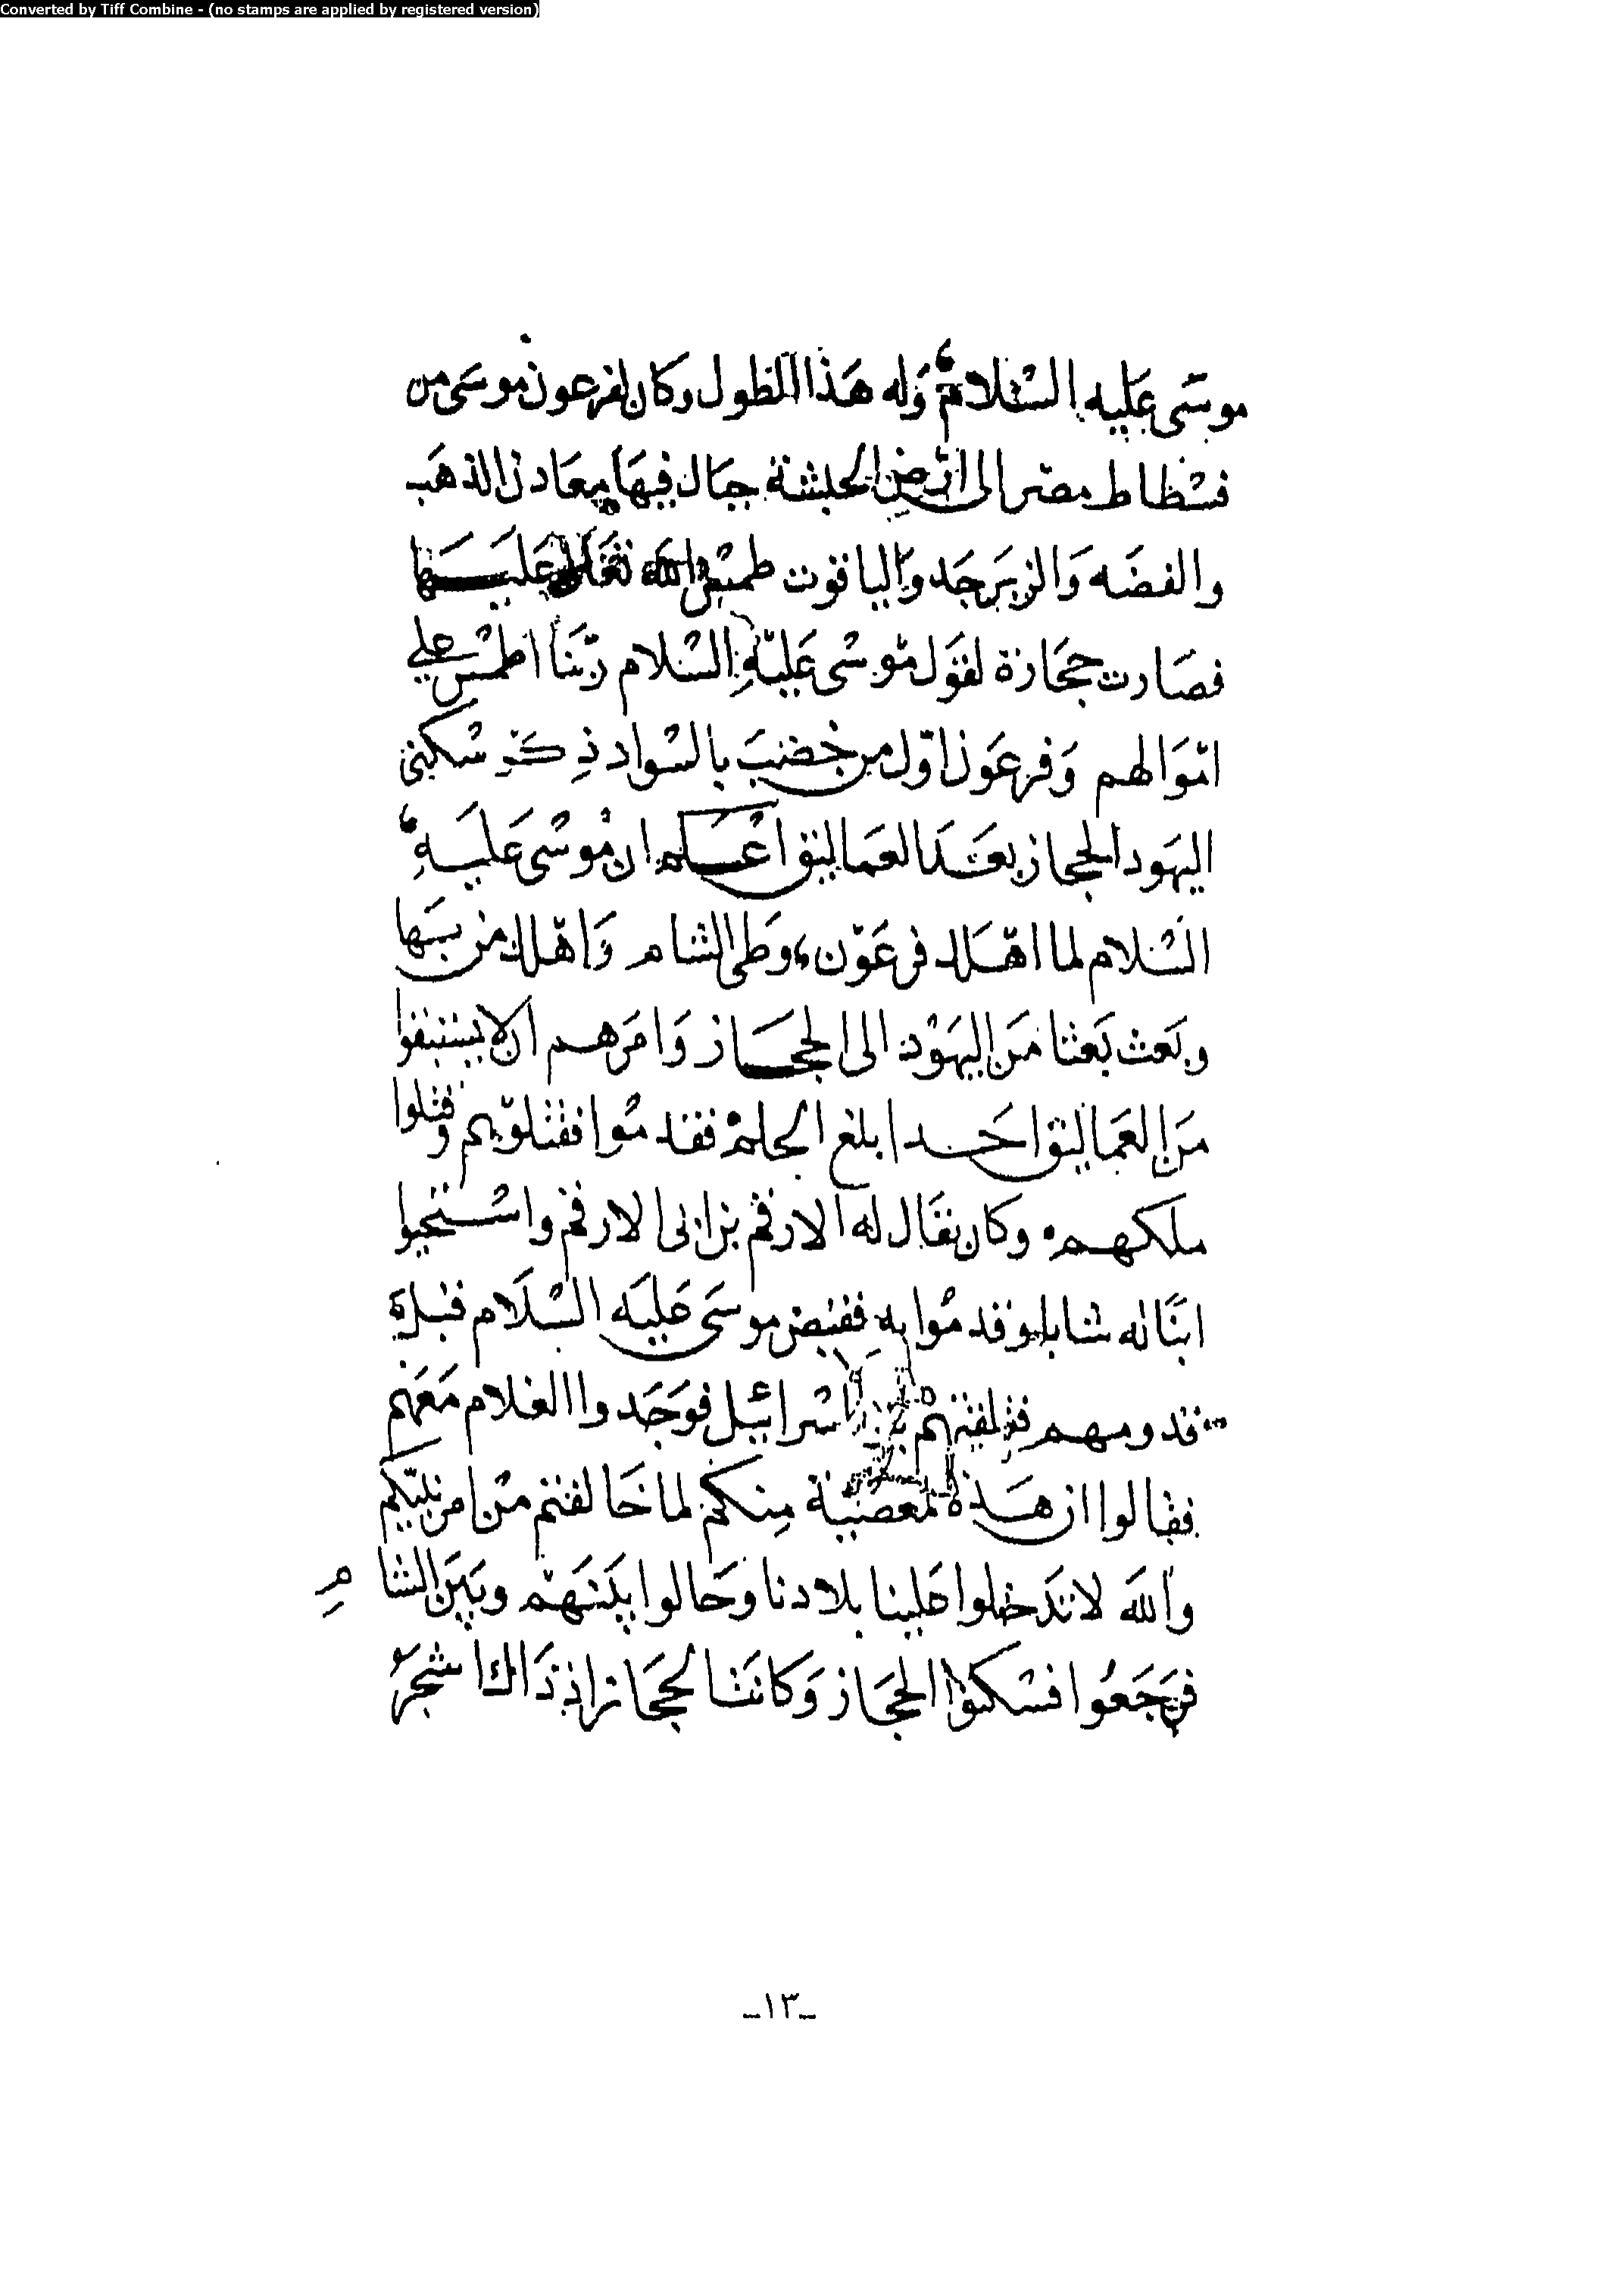 Converted by Tiff Combine - (no stamps are applied by registered version)
موسَى عَليه السْلامْ وَله هَذا الطول وكان لفرعون موسَى من
فسْطاط مصْر الى ارْض الحبشة جبَال فيهَا معَادن الذهَب
والفضَه وَالزبَرجَد وَاليا قوت طمسْ الله تعَالى عَليَــها
فصَارت حجَارة لقوَل موسْى عَليْهِ السْلام ربّنَا اطمْس على
امْوَالهم وَفرعَون اوّل من خضبَ بالسْواد ذِكر سْكنى
اليهَود الحجاز بعَـد العَمَاليق اعْـلم ان مُوسْى عَليَـهِ
السْلام لما اهْـلك فرعَوْن وطى الشام وَاهْلك من بـهَا
وبَعث بَعثا مَن اليهَوْد الى الحجَـاز وَامَرهـم ان لا يستبقوا
مَن العَماليق احَـدا بلغ الحلمْ فقدمُوا فقتلوْهم وقتلوا
ملكهـم وكان يقَال له الارقم بن ابى الارقم واسْتحيوا
ابنَاله شابا وقدمُوا به فقبض موسَى عَليَه السْلَام قبل
قدومهـم فتلقتهمْ بنو اسْرائيل فوَجَدوا الغلام مَعَهم
فقالوا ان هَـذه لمعصْيَة مِنكم لما خَالفتم مْن امر نبيّكم
وَالله لا تدَخلوا عَلينا بلادنا وحَالوا بيَنهَمْ وبيَن الشامِ
فرَجَعُوا فسْكنوا الحجَاز وَكانَت الحجَاز اذ ذَاك اشجرَ
ـ١٣ـ